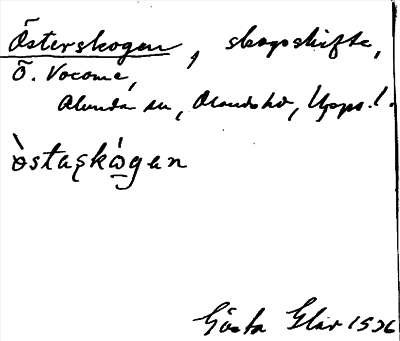 Österskogen, skogsskifte,
Ö. Vocome,
Alunda sn, Olands hd, Upps. l.
òstaşkógan
Gösta Glar 1936